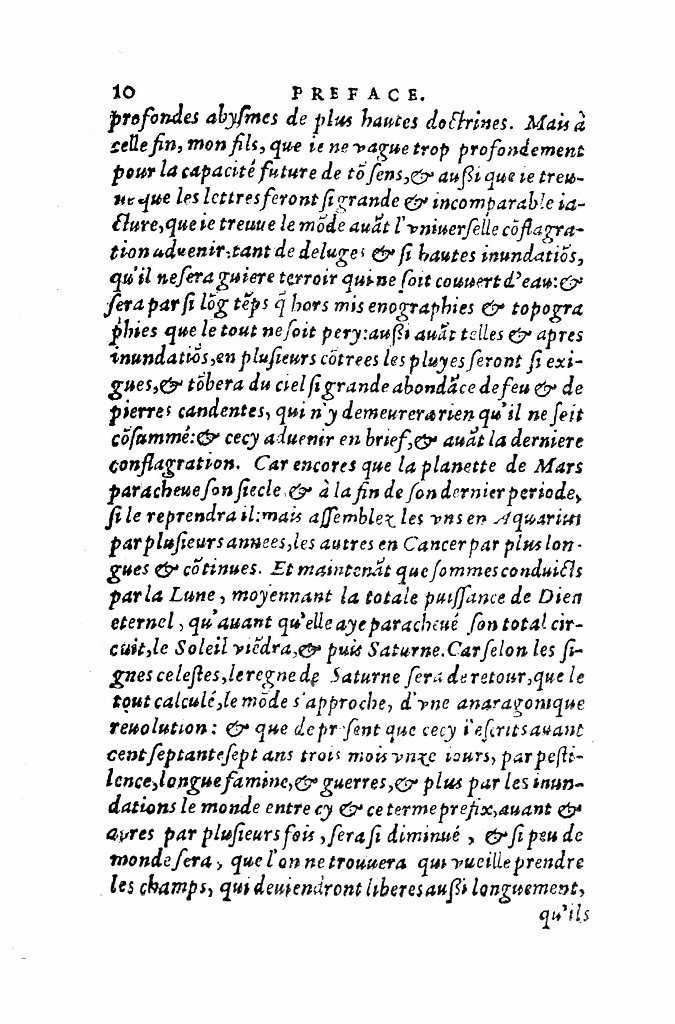 10 PREFACE.
profondes abyſmes de plus hautes doctrines. Mais à
celle fin, mon fils, que ie ne vague trop profondement
pour la capacité future de tõ ſens,& außi que ie treu-
ue que les lettres feront ſi grande & incomparable ia-
cture, que ie treuue le mõde auãt l'vniuerſelle cõflagra-
tion aduenir, tant de deluges & ſi hautes inundatiõs,
qu'il ne ſera guiere terroir qui ne ſoit couuert d'eau: &
ſera par ſi lõg tẽps q̃ hors mis enographies & topogra
phies que le tout ne ſoit pery: außi auãt telles & apres
inundatiõs, en pluſieurs cõtrees les pluyes ſeront ſi exi-
gues, & tõbera du ciel ſi grande abondãce de feu & de
pierres candentes, qui n'y demeurera rien qu'il ne ſeit
cõſummé: & cecy aduenir en brief, & auãt la derniere
conflagration. Car encores que la planette de Mars
paracheue ſon ſiecle & à la fin de ſon dernier periode,
ſi le reprendra il: mais aſſemblez les vns en Aquarius
par pluſieurs annees, les autres en Cancer par plus lon-
gues & cõtinues. Et maintenãt que ſommes conduicts
par la Lune, moyennant la totale puiſſance de Dieu
eternel, qu'auant qu'elle aye paracheué ſon total cir-
cuit, le Soleil viẽdra, & puis Saturne. Car ſelon les ſi-
gnes celeſtes, le regne de Saturne ſera de retour, que le
tout calculé, le mõde s'approche, d'vne anaragonique
reuolution: & que de preſent que cecy i'eſcrits auant
cent ſeptante ſept ans trois mois vnze iours, par peſti-
lence, longue famine, & guerres, & plus par les inun-
dations le monde entre cy & ce terme prefix, auant &
apres par pluſieurs fois, ſera ſi diminué, & ſi peu de
monde ſera, que l'on ne trouuera qui vueille prendre
les champs, qui deuiendront liberes außi longuement,
qu'ils